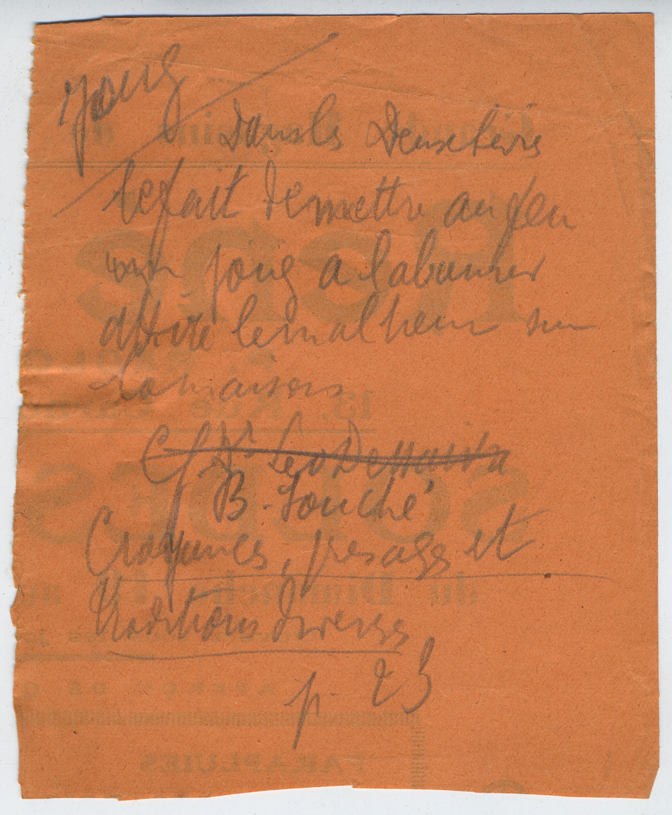 Joug
Dans les Deux Sèvres
le fait de mettre au feu
un joug a labourer
attire le malheur sur
la maison
Cf Dr Leo Desaivre
B. Souché
Croyances, presages et
traditions diverses
p. 23
PARAPLUIES